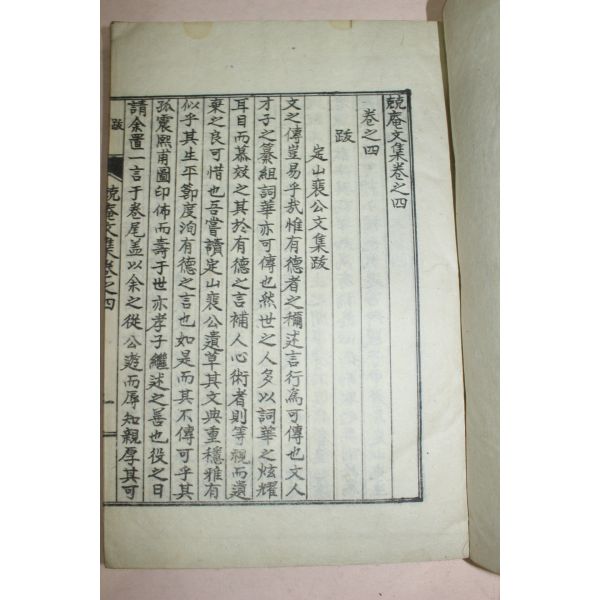 兢庵文集卷之四
卷之四
跋
定山裵公文集跋
文之傳豈易乎哉惟有德者之稱述言行爲可傳也文人
才子之纂組詞華亦可傳也然世之人多以詞華之炫耀
耳目而慕效之其於有德之言補人心術者則等視而遺
棄之良可惜也吾嘗讀定山裵公遺草其文典重穩雅有
似乎其生平節度洵有德之言也如是而其不傳可乎其
孤震熙甫圖印佈而壽于世亦孝子繼述之善也役之日
請余置一言于卷尾盖以余之從公遊而辱知親厚其可
跋
兢庵文集卷之四
一